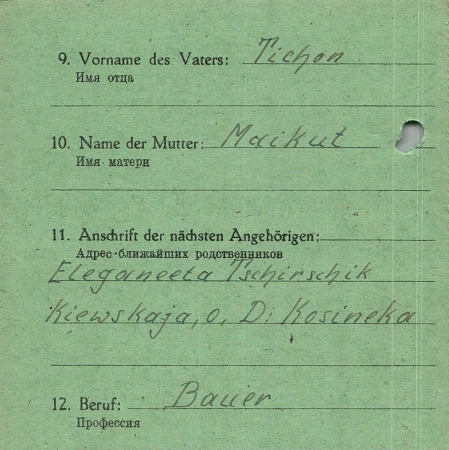 9. Vorname des Vaters: Tichon
Имя отца
10. Name der Mutter: Maikut
Имя матери
11. Anschrift der nächsten Angehörigen:
Адрес ближайших родственников
Eleganeeta Tschirschik
Kiewskaja, o, D: Kosineka
12. Beruf: Bauer
Профессия